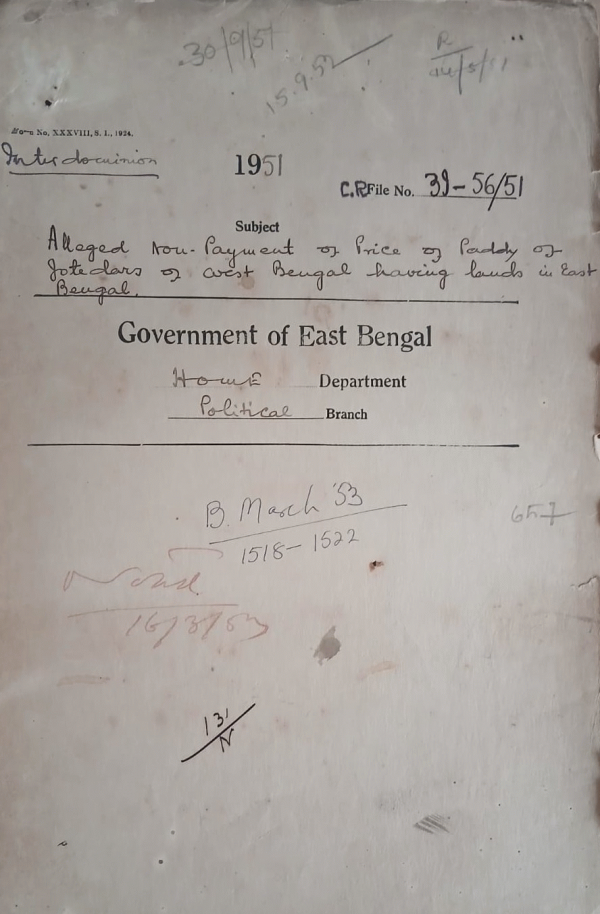 30/9/51
15.9.52
R
Form No. XXXVIII, S. I., 1924.
Inter dominion
1951
C.R. File No. 39-56/51
Subject
Alleged Non-Payment of Price of Paddy of
Jotedars of West Bengal having lands in East
Bengal.
Government of East Bengal
Home Department
Political Branch
B. March '53
1518-1522
657
16/3/53
131
N